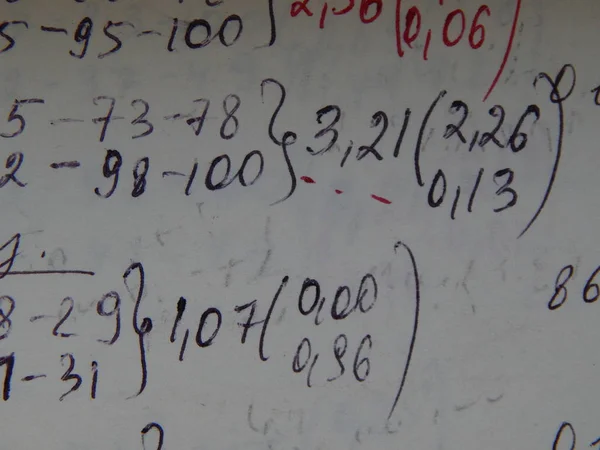 5-95-100} (0,06)
5-73-78} 3,21 (2,26
2-98-100} 0,13)
8-29} 1,07 (0,00
1-31} 0,96)
86